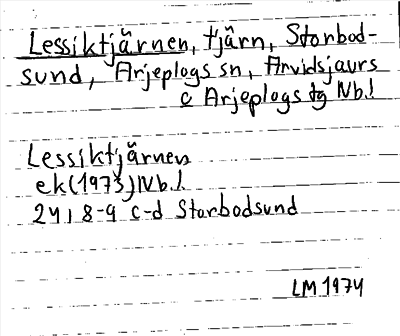 Lessiktjärnen, tjärn, Storbod-
sund, Arjeplogs sn, Arvidsjaurs
o Arjeplogs tg Nb.l.
Lessiktjärnen
ek(1973)Nb.l.
24I 8-9 c-d Storbodsund
LM 1974